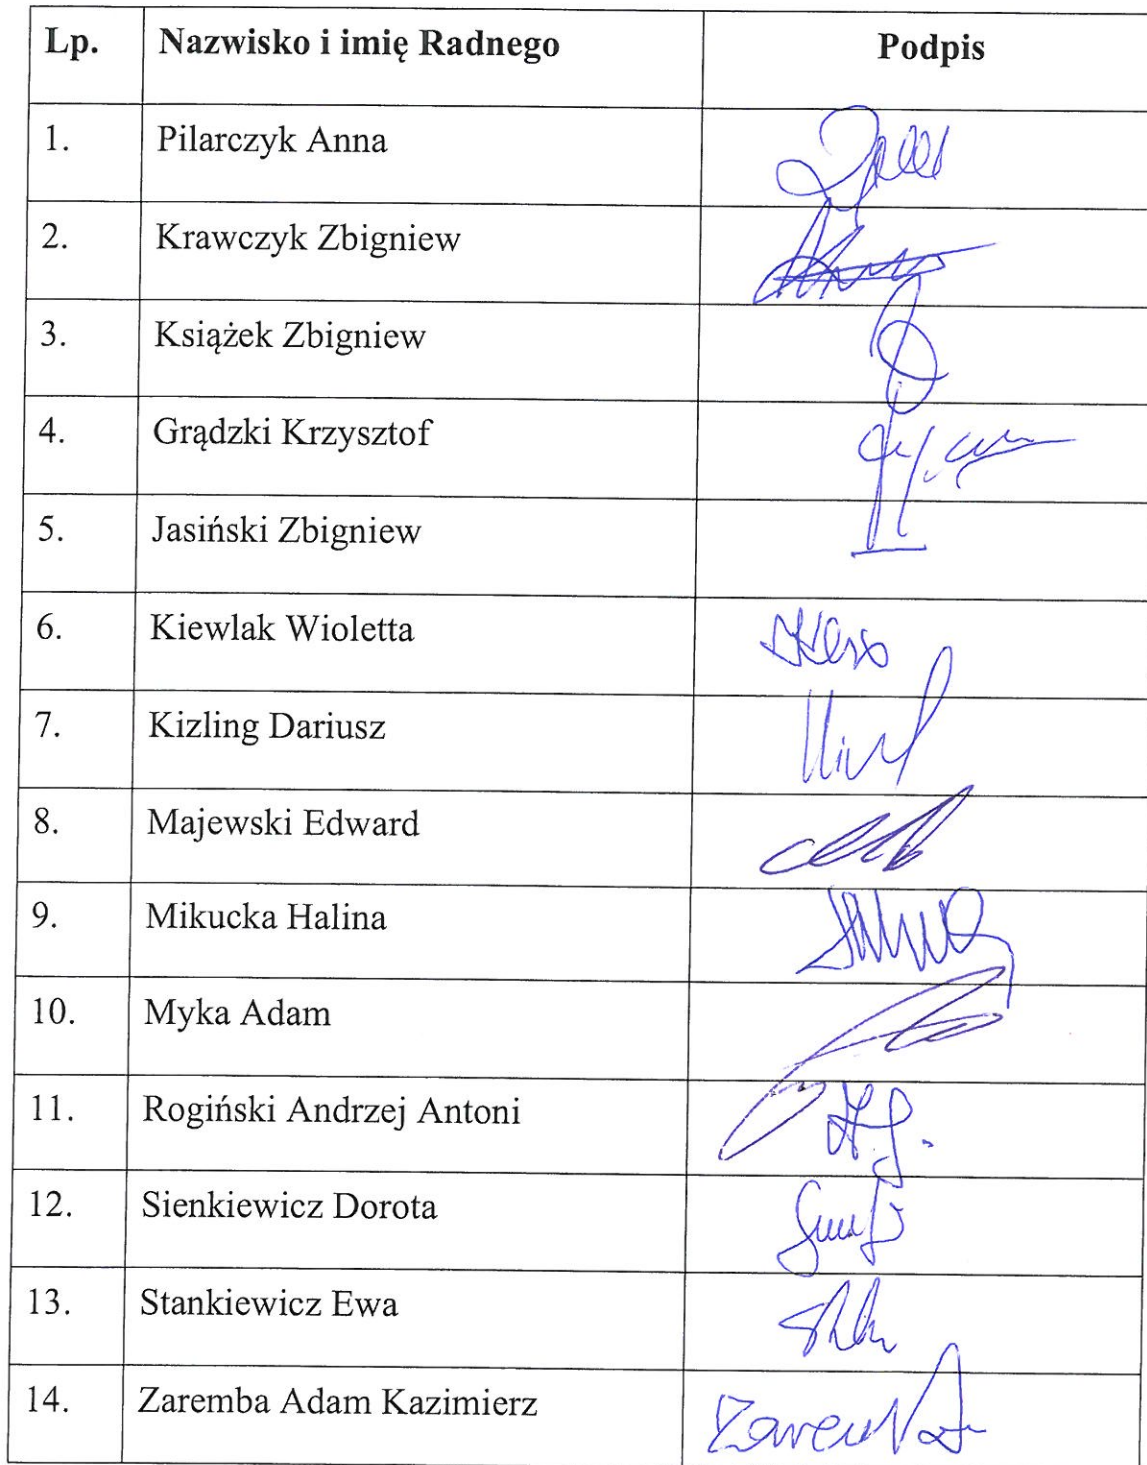 Lp. Nazwisko i imię Radnego Podpis
1. Pilarczyk Anna
2. Krawczyk Zbigniew
3. Książek Zbigniew
4. Grądzki Krzysztof
5. Jasiński Zbigniew
6. Kiewlak Wioletta
7. Kizling Dariusz
8. Majewski Edward
9. Mikucka Halina
10. Myka Adam
11. Rogiński Andrzej Antoni
12. Sienkiewicz Dorota
13. Stankiewicz Ewa
14. Zaremba Adam Kazimierz